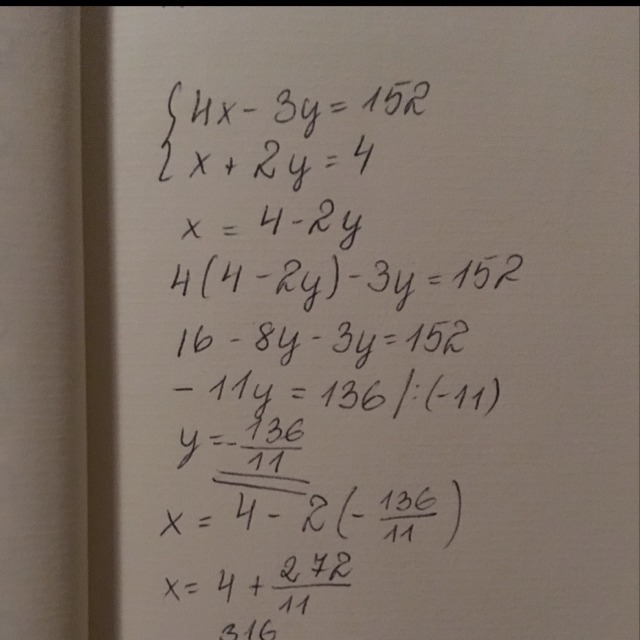 {4x - 3y = 152
{x + 2y = 4
x = 4 - 2y
4(4 - 2y) - 3y = 152
16 - 8y - 3y = 152
- 11y = 136 /:(-11)
y = - 136/11
x = 4 - 2(- 136/11)
x = 4 + 272/11
316